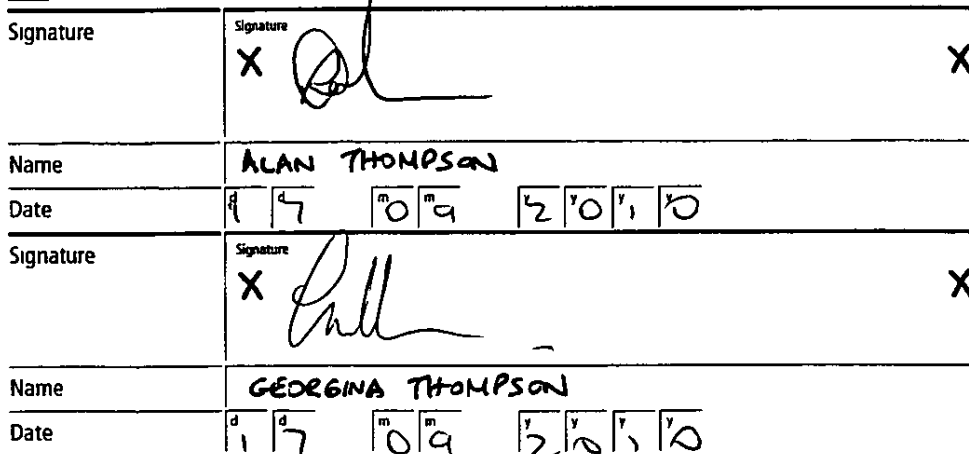 Signature Signature
X X
Name ALAN THOMPSON
Date d1 d7 m0 m9 y2 y0 y1 y0
Signature Signature
X X
Name GEORGINA THOMPSON
Date d1 d7 m0 m9 y2 y0 y1 y0